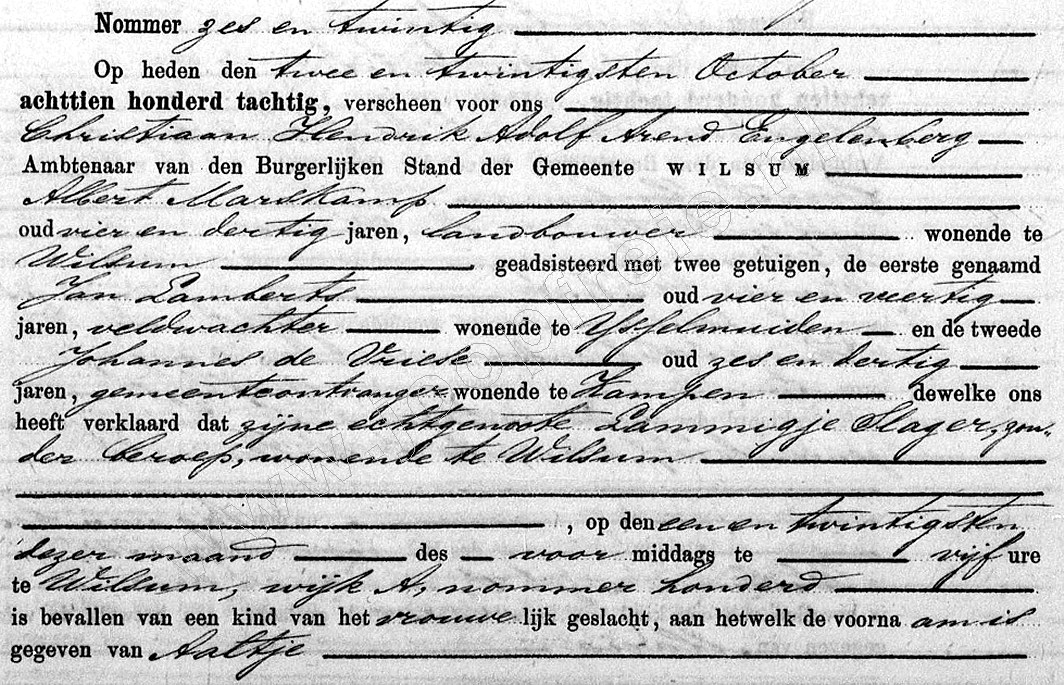 Nommer zes en twintig
Op heden den twee en twintigsten October
achttien honderd tachtig, verscheen voor ons
Christiaan Hendrik Adolf Arend Engelenberg
Ambtenaar van den Burgerlijken Stand der Gemeente WILSUM
Albert Marskamp
oud vier en dertig jaren, landbouwer wonende te
Wilsum geadsisteerd met twee getuigen, de eerste genaamd
Jan Lamberts oud vier en veertig
jaren, veldwachter wonende te Ysselmuiden en de tweede
Johannes de Vriese oud zes en dertig
jaren, gemeenteontvanger wonende te Kampen dewelke ons
heeft verklaard dat zijne echtgenoote Lammigje Slager, zon-
der beroep, wonende te Wilsum
, op den een en twintigsten
dezer maand des voor middags te vijf ure
te Wilsum, wijk A, nommer honderd
is bevallen van een kind van het vrouwe lijk geslacht, aan hetwelk de voorna am is
gegeven van Aaltje